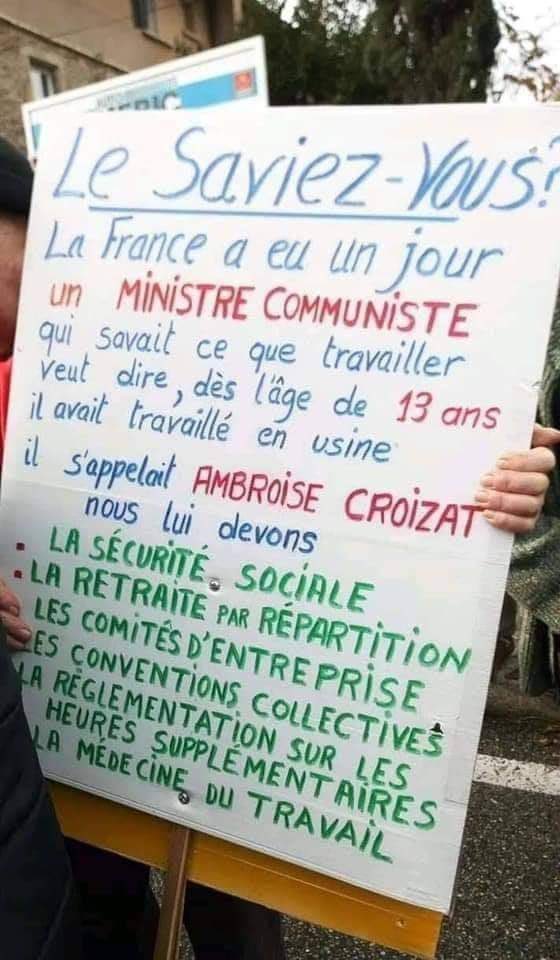 Le Saviez-Vous?
La France a eu un jour
un MINISTRE COMMUNISTE
qui savait ce que travailler
veut dire, dès l'âge de 13 ans
il avait travaillé en usine
il s'appelait AMBROISE CROIZAT
nous lui devons
. LA SÉCURITÉ SOCIALE
. LA RETRAITE PAR RÉPARTITION
LES COMITÉS D'ENTREPRISE
LES CONVENTIONS COLLECTIVES
LA RÉGLEMENTATION SUR LES
HEURES SUPPLÉMENTAIRES
LA MÉDECINE DU TRAVAIL